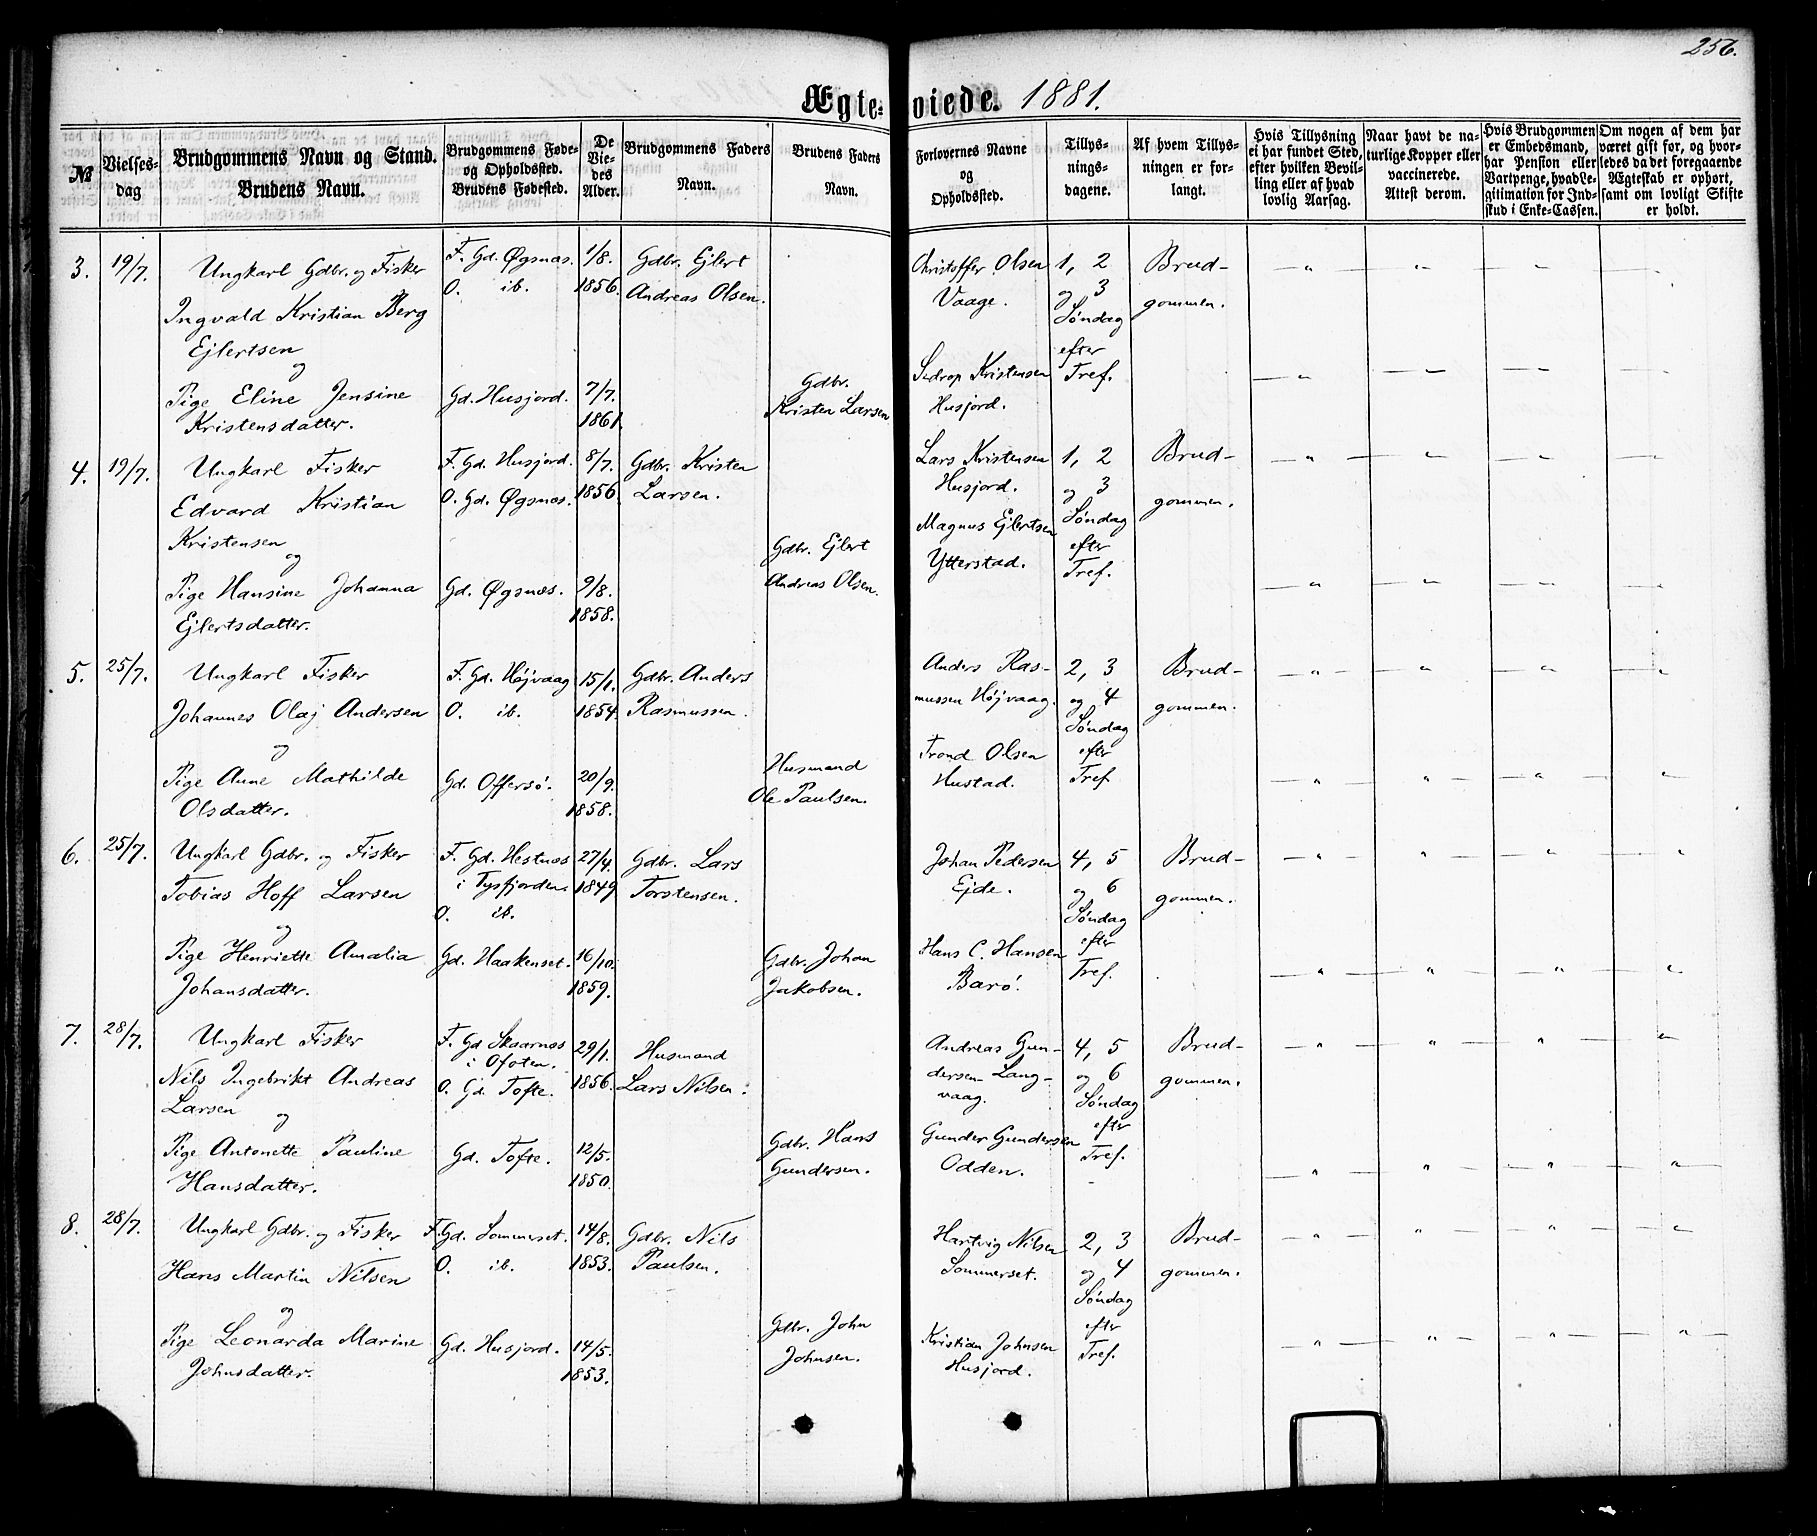 256.
Ægte- viede. 1881.
№
Vielses-
dag
Brudgommens Navn og Stand.
Brudens Navn.
Brudgommens Føde-
og Opholdssted.
Brudens Fødested.
De
Vie-
des
Alder.
Brudgommens Faders
Navn.
Brudens Faders
Navn.
Forlovernes Navne
og
Opholdssted.
Tillys-
nings-
dagene.
Af hvem Tillys-
ningen er for-
langt.
Hvis Tillysning
ei har fundet Sted,
efter hvilken Bevil-
ling eller af hvad
lovlig Aarsag.
Naar havt de na-
turlige Kopper eller
vaccinerede.
Attest derom.
Hvis Brudgommen
er Embedsmand,
har Pension eller
Vartpenge, hvad Le-
gitimation for Ind-
skud i Enke-Cassen.
Om nogen af dem har
været gift før, og hvor-
ledes da det foregaaende
Ægteskab er ophørt,
samt om lovligt Skifte
er holdt.
3. 19/7. Ungkarl Gdbr. og Fisker
Ingvald Kristian Berg
Ejlertsen
og
Pige Eline Jensine
Kristensdatter.
F. Gd. Øgsnæs.
O. ib.
Gd. Husjord.
1/8.
1856.
7/7.
1861.
Gdbr. Ejlert
Andreas Olsen.
Gdbr.
Kristen Larsen
Christoffer Olsen
Vaage.
Sedrop Kristensen
Husjord.
1, 2
og 3
Søndag
efter
Tref.
Brud-
gommen.
4. 19/7. Ungkarl Fisker
Edvard Kristian
Kristensen
og
Pige Hansine Johanna
Ejlertsdatter.
F. Gd. Husjord.
O. Gd. Øgsnæs.
Gd. Øgsnæs.
8/7.
1856.
9/8.
1858.
Gdbr. Kristen
Larsen.
Gdbr. Ejlert
Andreas Olsen.
Lars Kristensen
Husjord.
Magnus Ejlertsen
Ytterstad.
1, 2
og 3
Søndag
efter
Tref.
Brud-
gommen.
5. 25/7. Ungkarl Fisker
Johannes Olaj Andersen
og
Pige Anne Mathilde
Olsdatter.
F. Gd. Højvaag
O. ib.
Gd. Offersø.
15/1.
1854.
20/9.
1858.
Gdbr. Anders
Rasmussen.
Husmand
Ole Paulsen.
Anders Ras-
mussen Højvaag.
Trond Olsen
Hustad.
2, 3
og 4
Søndag
efter
Tref
Brud-
gommen.
6. 25/7. Ungkarl Gdbr. og Fisker
Tobias Hoff Larsen
og
Pige Henriette Amalia
Johansdatter.
F. Gd. Hestnæs
i Tysfjorden
O. ib.
Gd. Haakenset.
27/4.
1849
16/10.
1859.
Gdbr. Lars
Torstensen.
Gdbr. Johan
Jakobsen.
Johan Pedersen
Ejde.
Hans C. Hansen
Barø.
4, 5
og 6
Søndag
efter
Tref.
Brud-
gommen.
7. 28/7. Ungkarl Fisker
Nils Ingebrikt Andreas
Larsen
og
Pige Antonette Pauline
Hansdatter.
F. Gd Skaarnæs
i Ofoten.
O. Gd. Tofte.
Gd. Tofte.
29/1.
1856.
12/5.
1850.
Husmand
Lars Nilsen.
Gdbr. Hans
Gundersen.
Andreas Gun-
dersen Lang-
vaag.
Gunder Gundersen
Odden.
4, 5
og 6
Søndag
efter
Tref.
Brud-
gommen.
8. 28/7. Ungkarl Gdbr. og Fisker
Hans Martin Nilsen
og
Pige Leonarda Marine
Johnsdatter.
F. Gd. Sommerset.
O. ib.
Gd. Husjord.
14/8.
1853.
14/5.
1853.
Gdbr. Nils
Paulsen.
Gdbr. John
Johnsen.
Hartvig Nilsen
Sommerset.
Kristian Johnsen
Husjord.
2, 3
og 4
Søndag
efter
Tref.
Brud-
gommen.